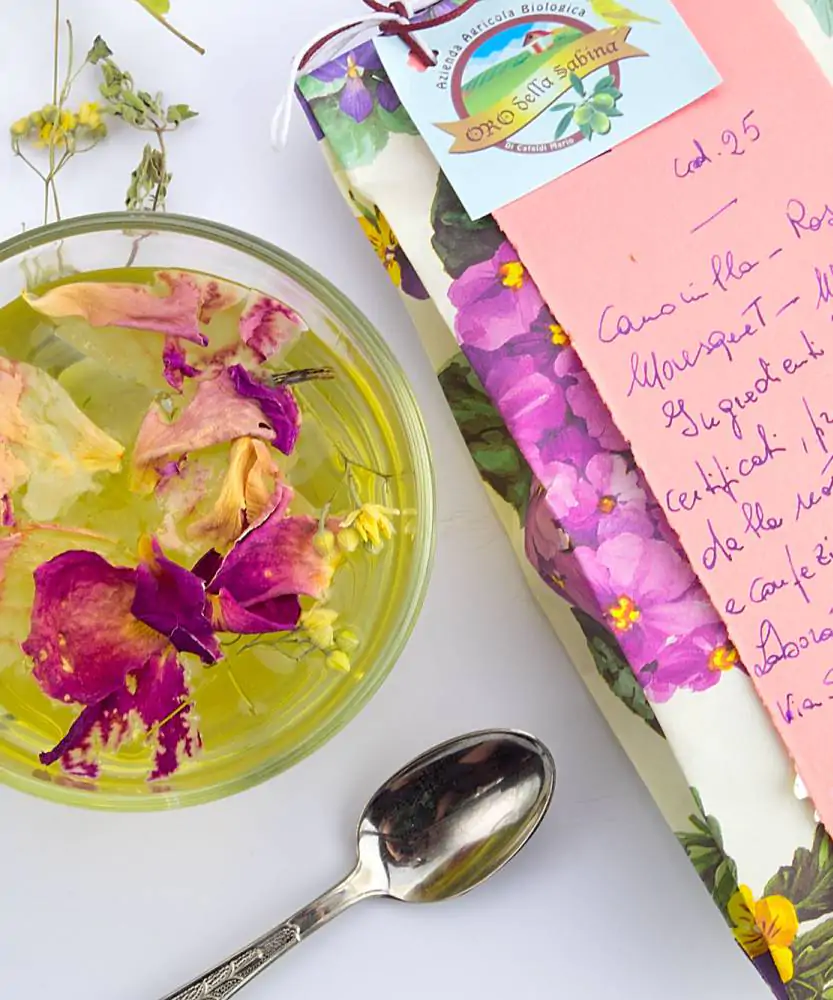 Azienda Agricola Biologica
ORO della Sabina
Di Cataldi Mario
cod. 25
Camomilla - Ros
Mousquet -
Ingredienti
certificati, p
dalla
e confezi
Labora
Via